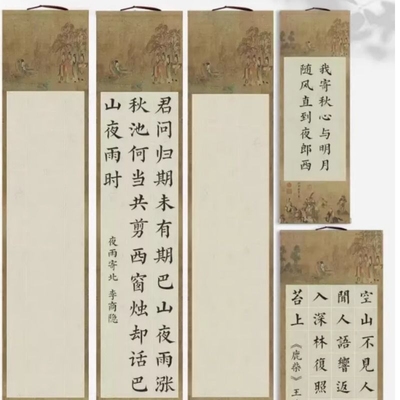 君问归期未有期巴山夜雨涨
秋池何当共剪西窗烛却话巴
山夜雨时
夜雨寄北 李商隐
我寄秋心与明月
随风直到夜郎西
空山不見人
聞人語響返
入深林復照
苔上《鹿柴》王